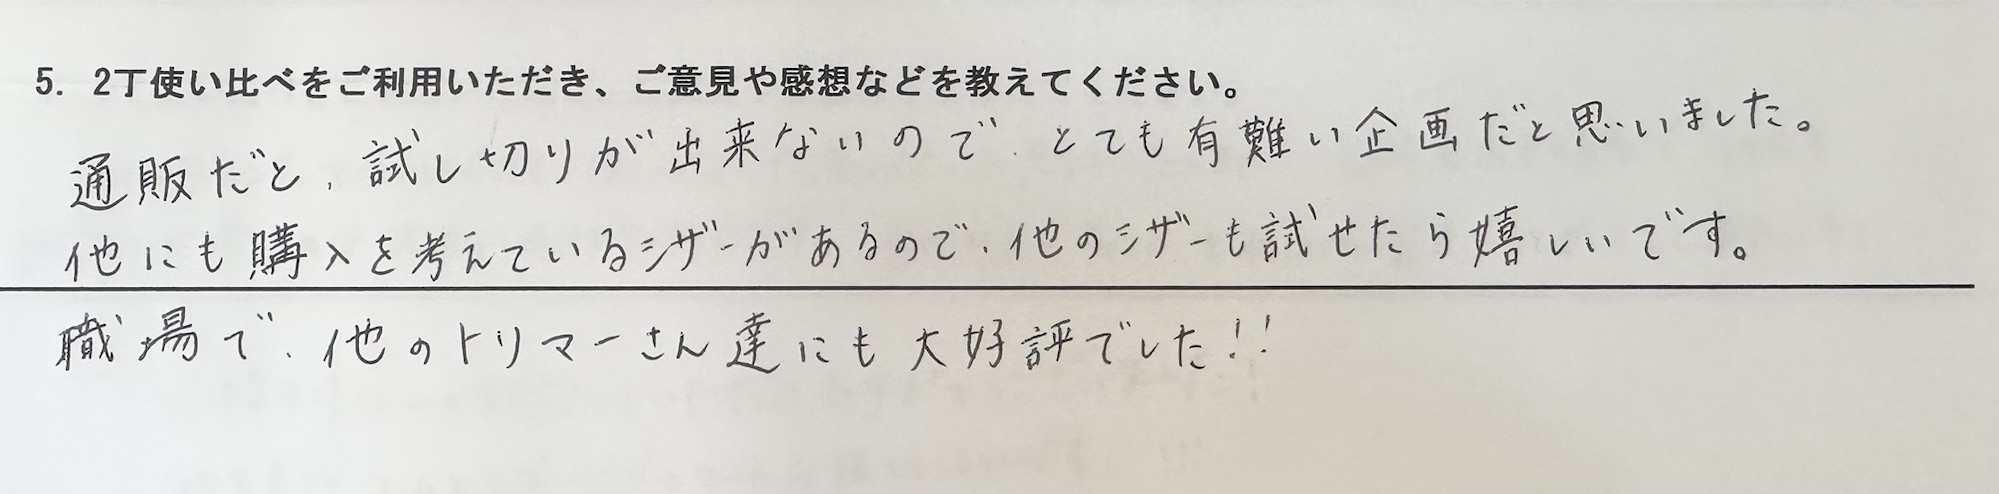 5. 2丁使い比べをご利用いただき、ご意見や感想などを教えてください。
通販だと、試し切りが出来ないので、とても有難い企画だと思いました。
他にも購入を考えているシザーがあるので、他のシザーも試せたら嬉しいです。
職場で、他のトリマーさん達にも大好評でした!!